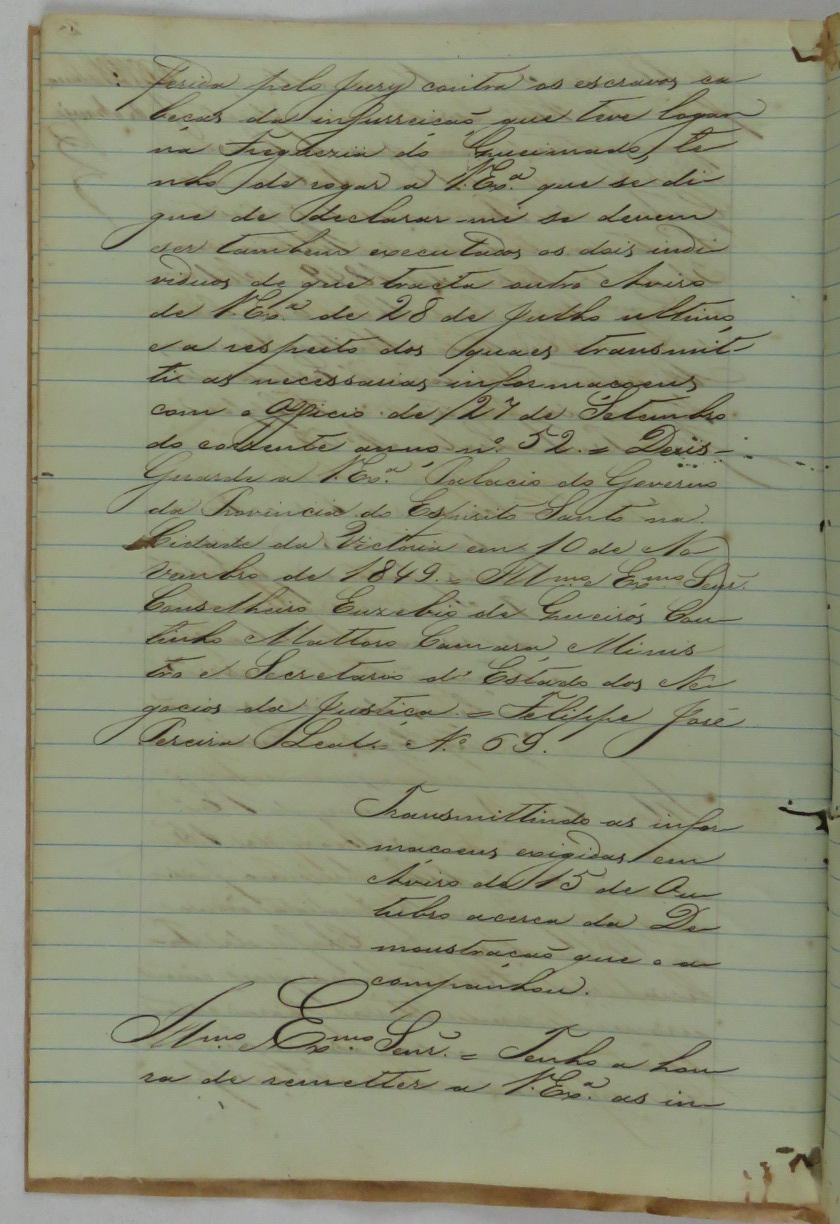 ferida pelo Jury contra os escravos ca
beças da insurreição que teve logar
na Freguezia do Queimado, te
nho de rogar a V. Ex.ª que se di
gne de declarar-me se devem
ser tambem executados os dois indi
viduos de que tracta outro Aviso
de V. Ex.ª de 28 de Julho ultimo,
e a respeito dos quaes transmit-
ti as necessarias informaçoens
com o officio de 27 de Setembro
do corrente anno nº 52. = Deus-
Guarde a V. Ex.ª Palacio do Governo
da Provincia do Espirito Santo na
Cidade da Victoria em 10 de No
vembro de 1849. = Illmo. Exmo. Senr.
Conselheiro Euzebio de Queirós Cou
tinho Mattoso Camara Minis
tro e Secretario d'Estado dos Ne
gocios da Justiça = Felippe José
Pereira Leal = N.º 69.
Transmittindo as infor
maçoens exigidas em
Aviso de 15 de Ou
tubro acerca da De
monstração que o a
companhou.
Illmo. Exmo. Senr. = Tenho a hon
ra de remetter a V. Ex.ª as in